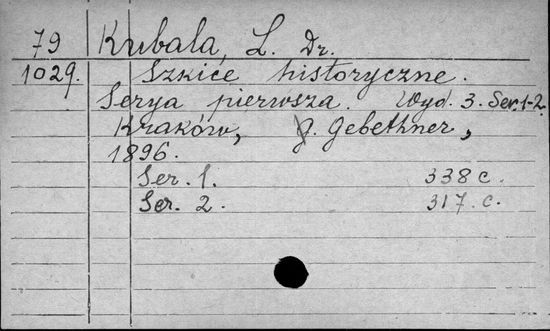 79 Kubala, L. Dr.
1029. Szkice historyczne.
Serya pierwsza. Wyd. 3. Ser. 1-2.
Kraków, G. Gebethner,
1896.
Ser. 1. 338 c.
Ser. 2. 317. c.